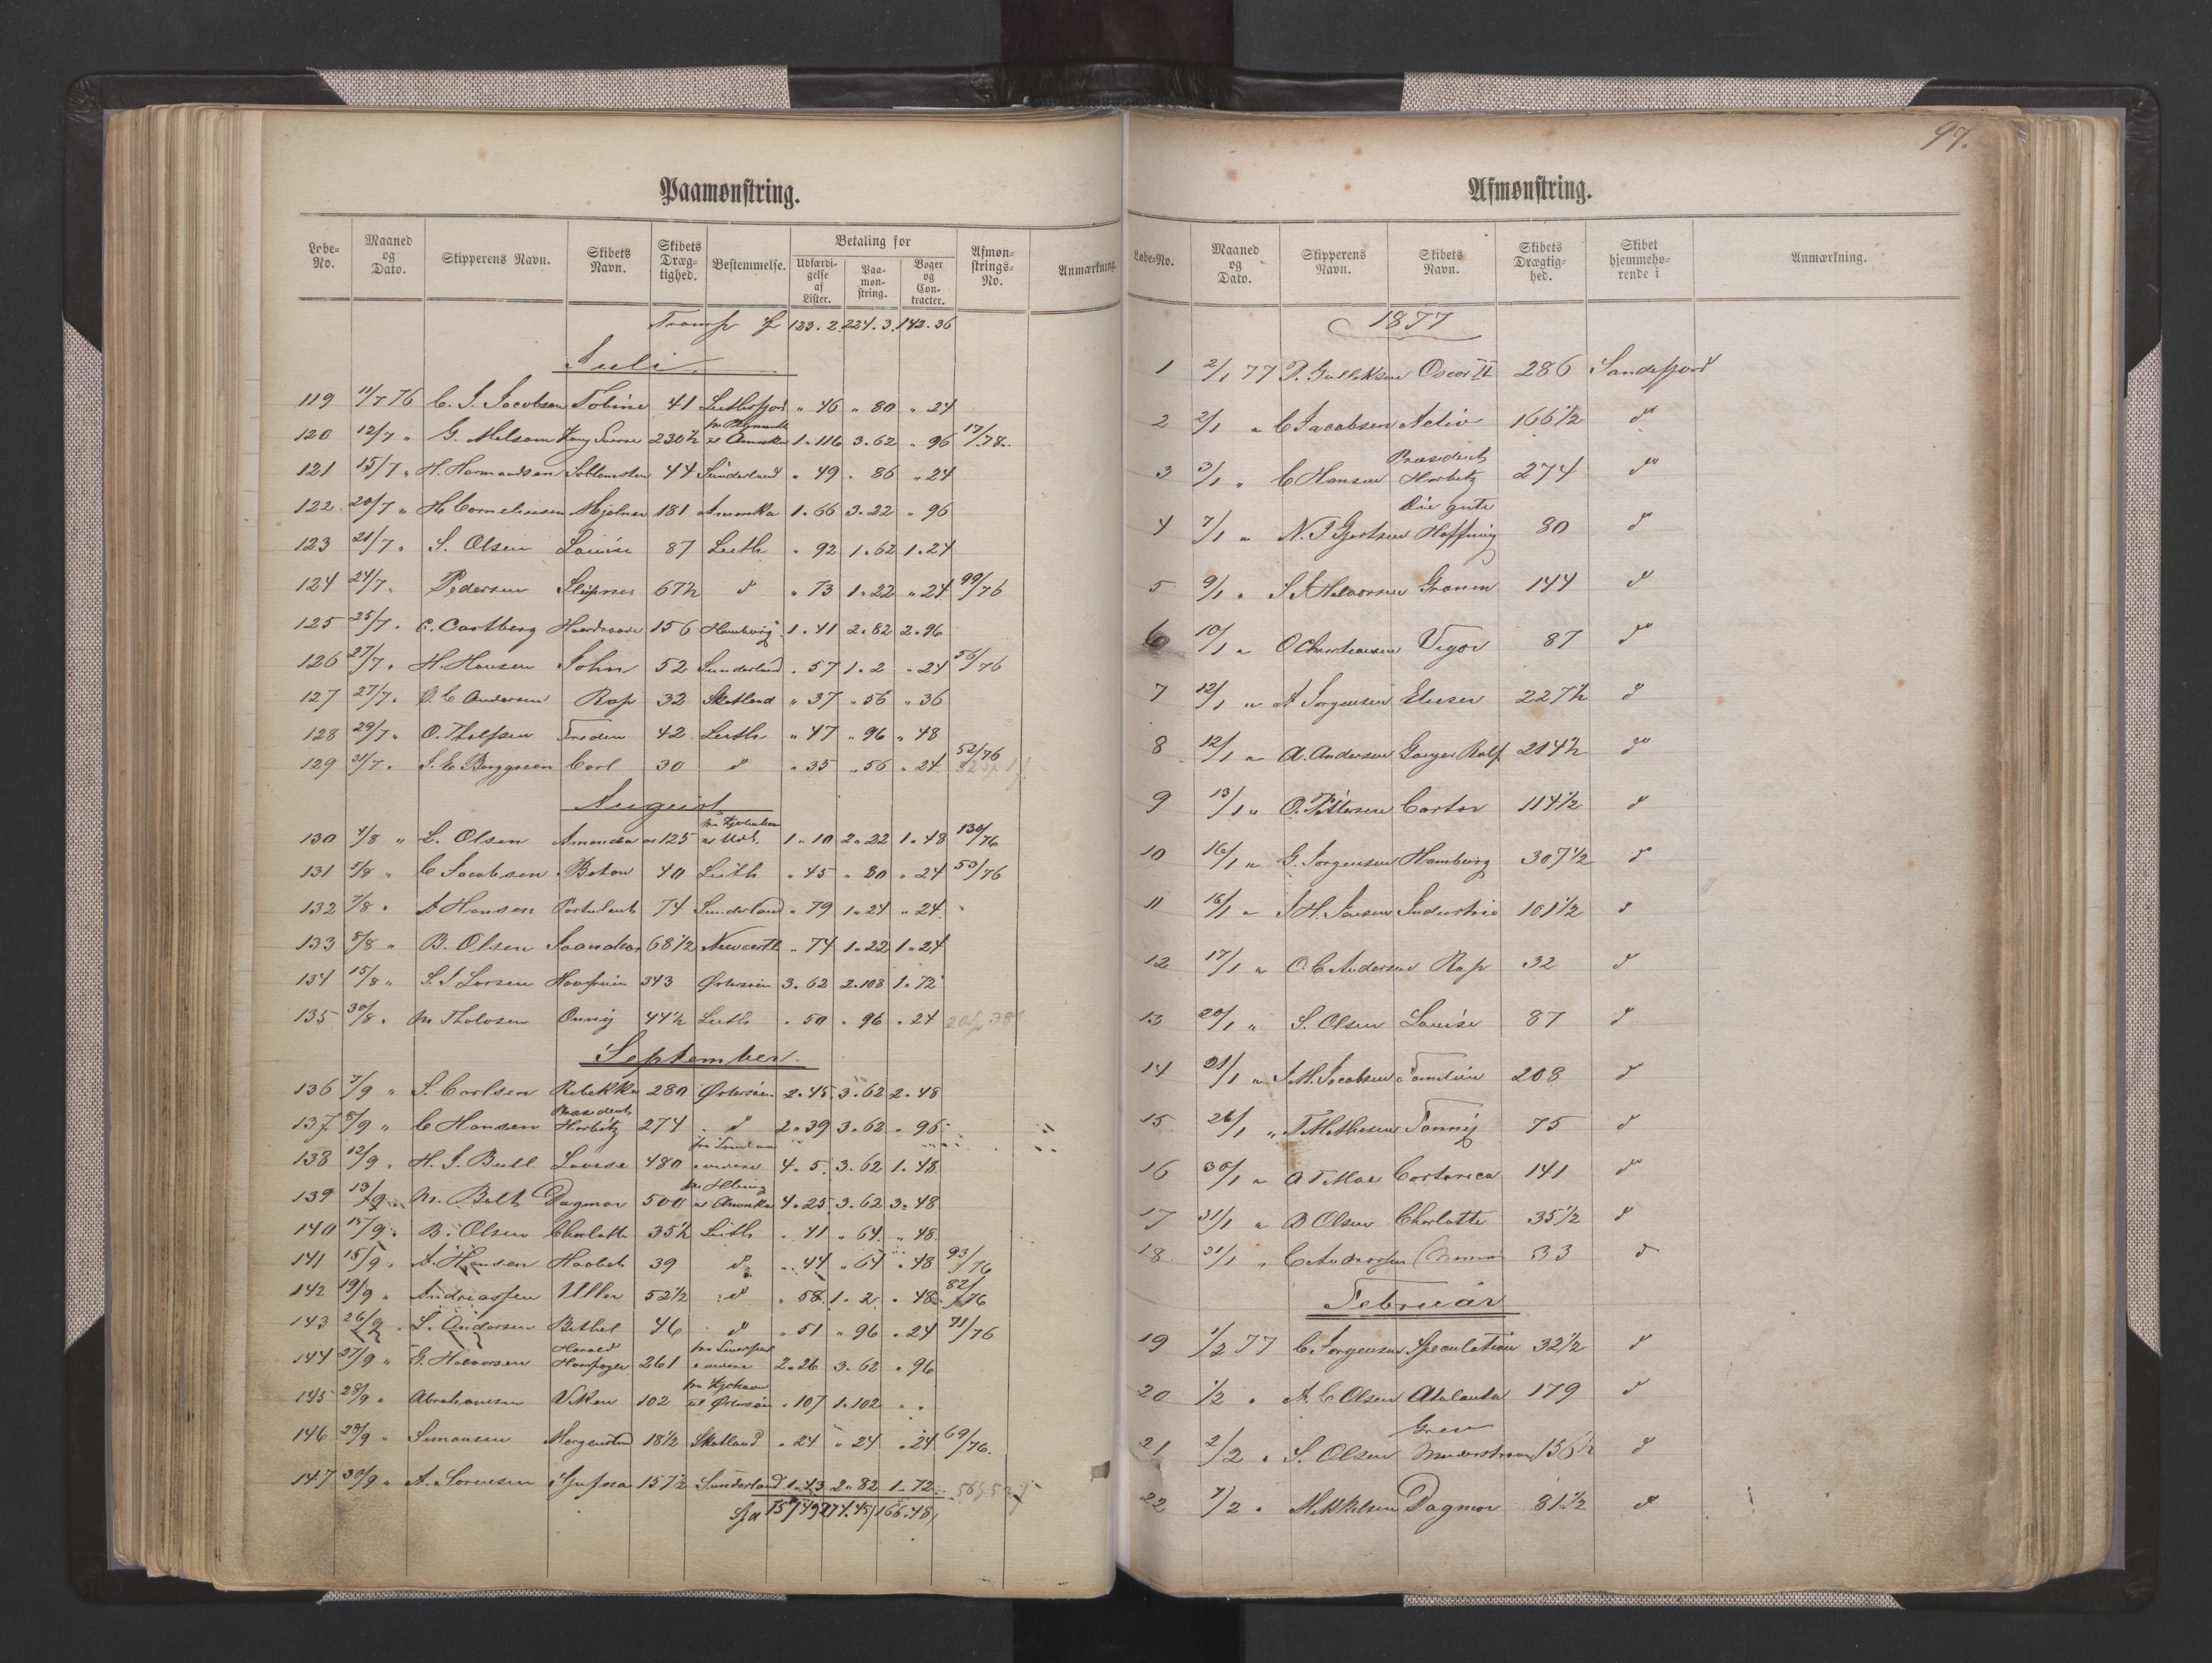 Paamønstring.
Løbe-No. Maaned og Dato. Skipperens Navn. Skibets Navn. Skibets Drægtighed. Bestemmelse. Betaling for Udfærdigelse af Lister. Paamønstring. Bøger og Contracter. Afmønstrings-No. Anmærkning.
Transp 123.2 224.3 142.36
Juli
119 11/7 76 C. J. Jacobsen Tobine 41 " 46 " 80 " 24
120 12/7 " G. Melsom Kong Sverre 230 1/2 Amerika 1.116 3.62 " 96 17/78
121 15/7 " H. Hermandsen 44 Sunderland " 49 " 86 " 24
122 20/7 " H. Corneliusen Mjølner 181 Amerika 1.66 3.22 " 96
123 21/7 " S. Olsen Louise 87 Leith " 92 1.62 1.24
124 24/7 " Pedersen Sleipner 67 1/2 d " 73 1.22 " 24 99/76
125 25/7 " C. Castberg Haardraade 156 Hamburg 1.41 2.82 2.96
126 27/7 " H. Hansen John 52 Sunderland " 57 1.2 " 24 56/76
127 27/7 " O. C Andersen Rap 32 Skotland " 37 " 56 " 36
128 29/7 " O. Tholfsen Freden 42 Leith " 47 " 96 " 48
129 31/7 " S. E Berggreen Carl 30 d " 35 " 56 " 24 52/76
August
130 4/8 " L. Olsen Amanda 125 1.10 2.22 1.48 130/76
131 5/8 " C Jacobsen Beton 40 Leith " 45 " 80 " 24 53/76
132 7/8 " A Hansen Postulent 74 Sunderland " 79 1.24 " 24
133 8/8 " B. Olsen 68 1/2 Newcastle " 74 1.22 1.24
134 15/8 " S. J Larsen Havfruen 343 Østersøen 3.62 2.108 1.72
135 30/8 " M Tholvsen Onnig 44 1/2 Leith " 50 " 96 " 24
September.
136 7/9 " S. Carlsen Rebekka 280 Østersøen 2.45 3.62 2.48
137 8/9 " C Hansen Præsident Harbitz 274 d 2.39 3.62 " 96
138 12/9 " H. J. Bull Lovise 480 4.5 3.62 1.48
139 13/9 " M. Bull Dagmar 500 Amerika 4.25 3.62 3.48
140 15/9 " B. Olsen Charlotte 35 1/2 Leith " 41 " 64 " 48
141 15/9 " A. Hansen Haabet 39 d " 44 " 64 " 48 93/76
142 19/9 " Andreassen Uller 52 1/2 d " 58 1.2 " 48 82/76
143 26/9 " L. Andersen Bethel 46 d " 51 " 96 " 24 71/76
144 27/9 " G. Halvorsen Harald Haarfager 261 fra Liverpool 2.26 3.62 " 96
145 28/9 " Abrahamsen Viken 102 til Østersøen " 107 1.102 " "
146 28/9 " Simonsen Morgenstund 18 1/2 Skotland " 24 " 24 " 24 69/76
147 30/9 " A. Sørensen 157 1/2 Sunderland 1.43 2.82 1.72
166.48
97.
Afmønstring.
Løbe-No. Maaned og Dato. Skipperens Navn. Skibets Navn. Skibets Drægtighed. Skibet hjemmehørende i Anmærkning.
1877
1 2/1 77 P. Gulliksen Oscar II 286 Sandefjord
2 2/1 " C Jacobsen Activ 166 1/2 do
3 3/1 " C Hansen Præsident Harbitz 274 do
4 7/1 " N. J Gjertsen Die gute Hoffnung 80 d
5 9/1 " S J Halvorsen Granen 144 d
6 10/1 " O Christiansen Vigor 87 do
7 12/1 " A Jørgensen Elieser 227 1/2 d
8 12/1 " A. Andersen Ganger Rolf 214 1/2 do
9 13/1 " O. Pettersen Castor 114 1/2 d
10 16/1 " G. Jørgensen Hamburg 307 1/2 d
11 16/1 " J H. Jensen Industrie 101 1/2 d
12 17/1 " O. C Andersen Rap 32 d
13 20/1 " S. Olsen Louise 87 d
14 21/1 " J. M. Jacobsen Familien 208 d
15 26/1 " Fannij 75 d
16 30/1 " A F Moe Costarica 141 do
17 31/1 " B Olsen Charlotte 35 1/2 d
18 31/1 " C Andersen 33 d
Februar
19 1/2 77 C Jørgensen Speculation 32 1/2 d
20 1/2 " A. C Olsen Atalanta 179 d
21 2/2 " S. Olsen Grev Wedel 156 1/2 d
22 7/2 " Mikkelsen Dagmar 81 1/2 d